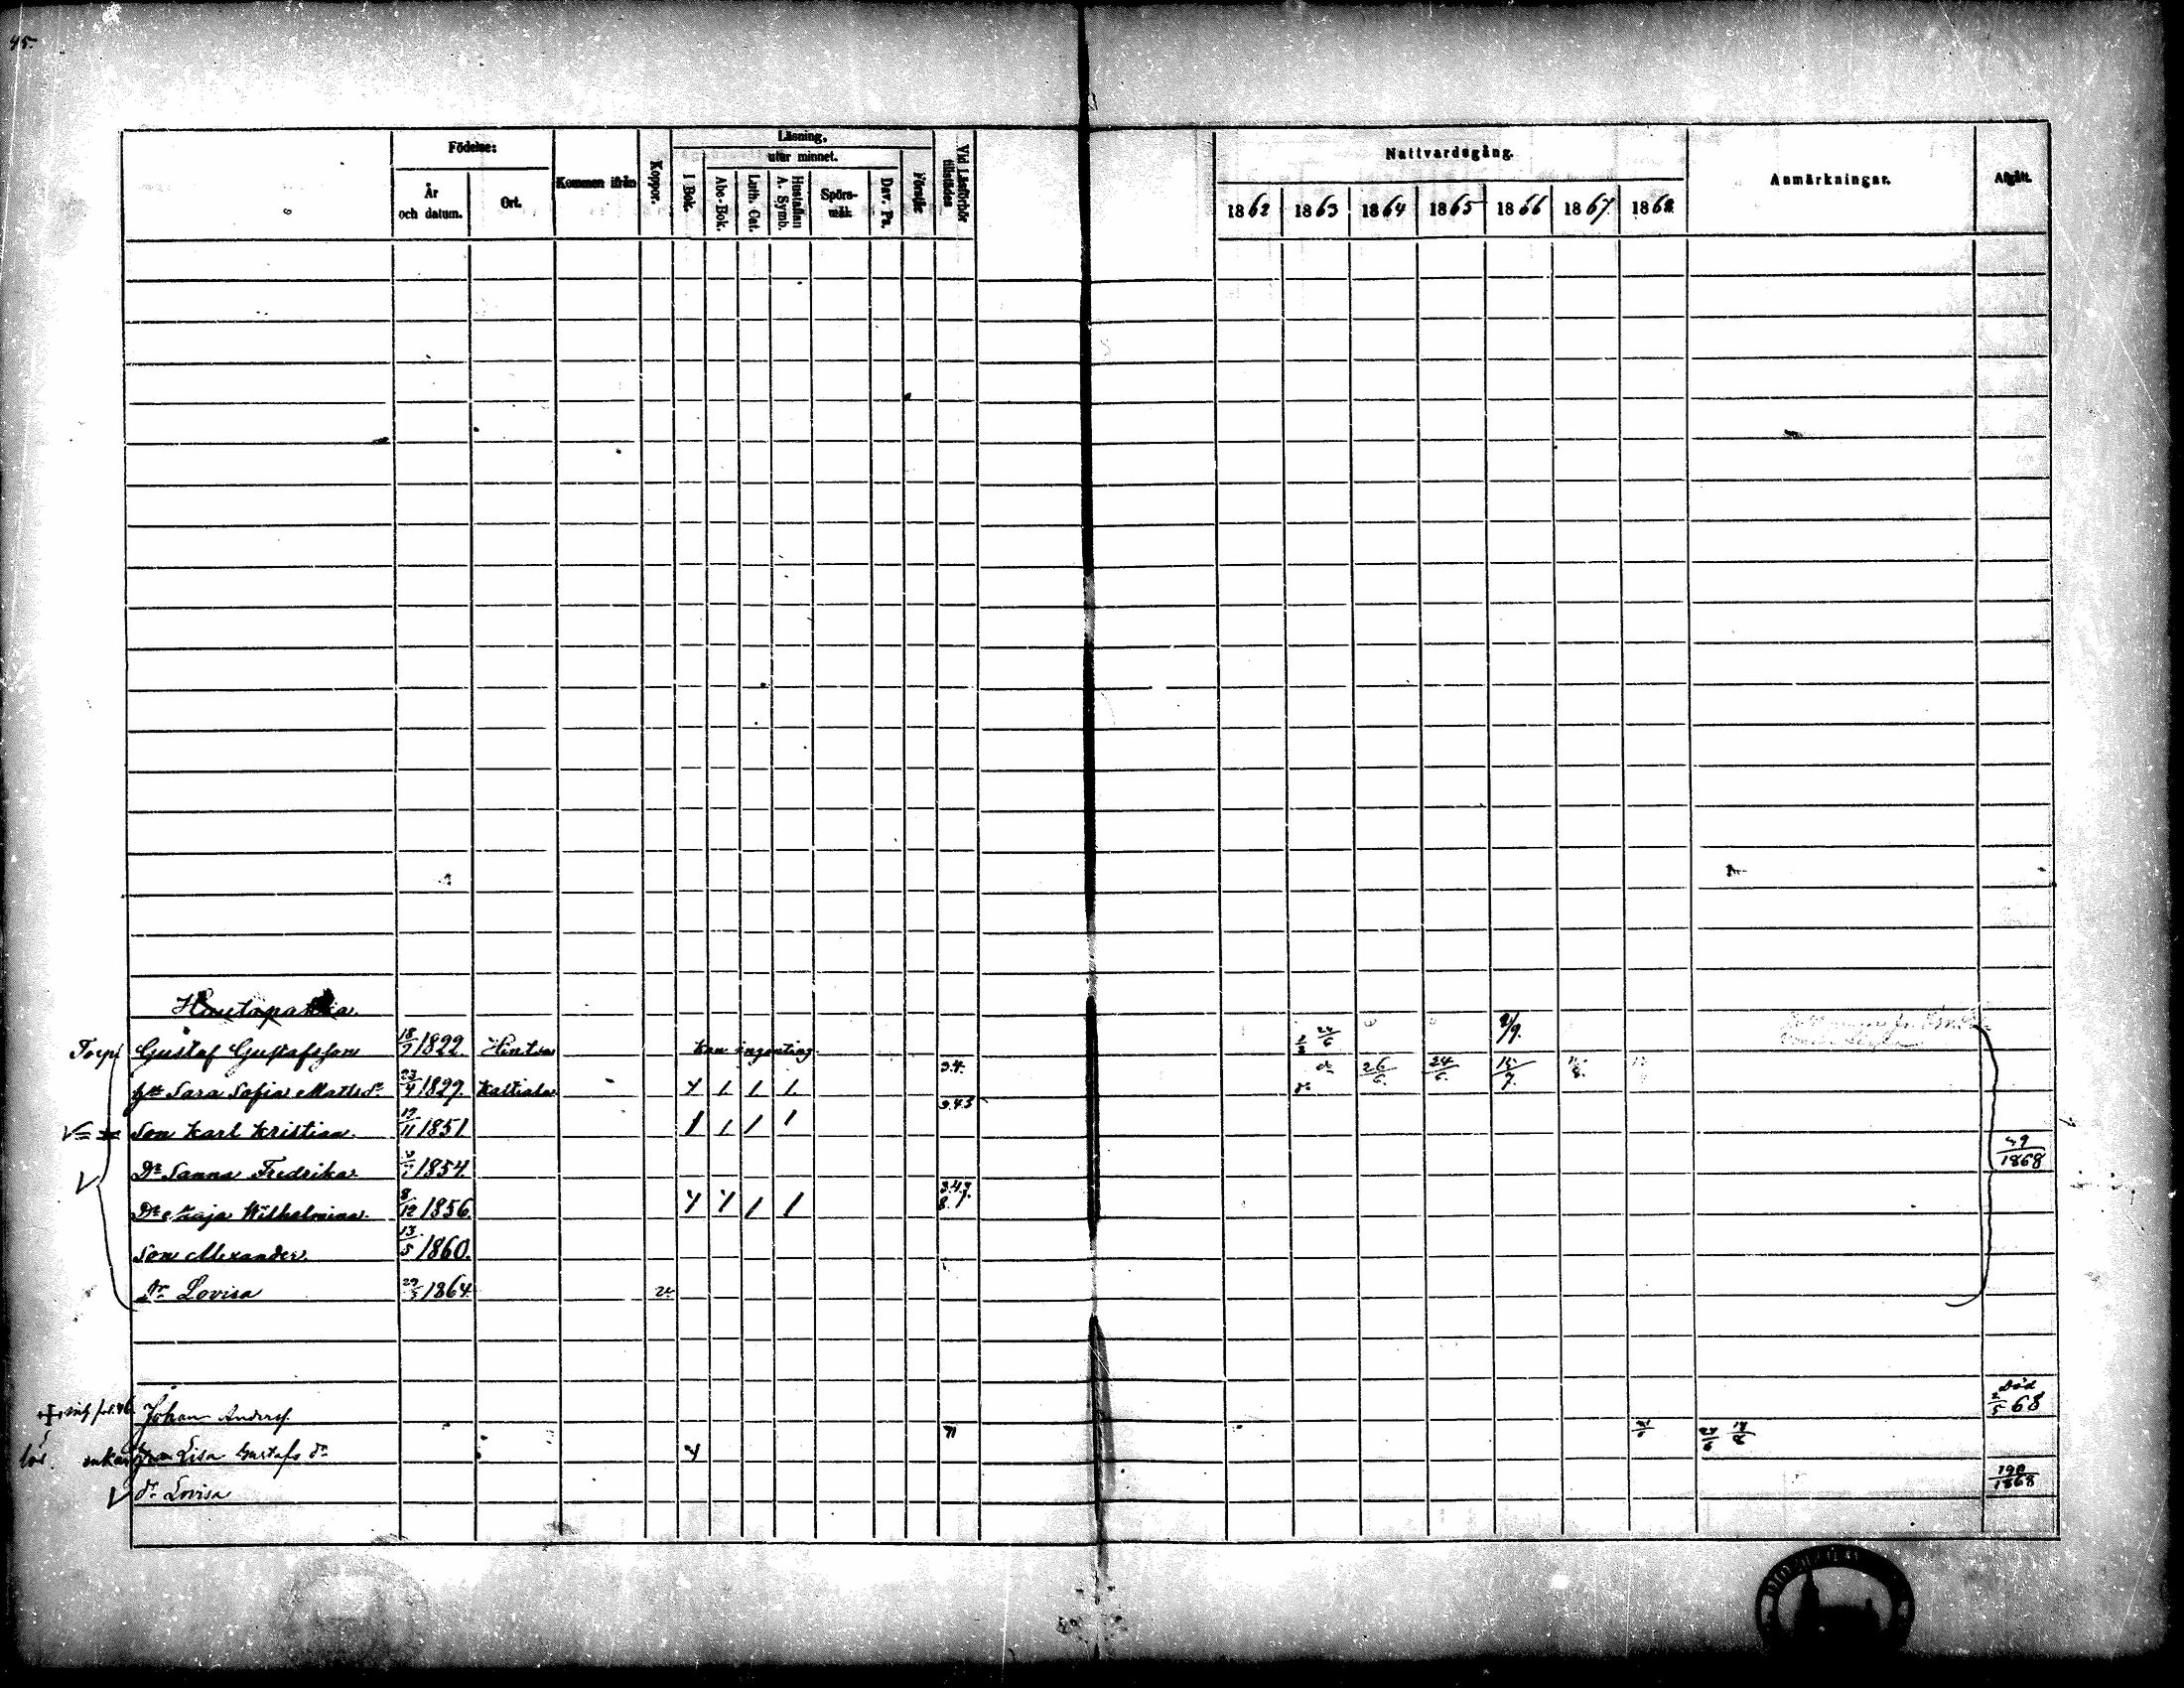 45.
Födelse:
År och datum.
Ort.
Kommen ifrån
Koppor.
Läsning,
utur minnet.
I Bok.
Abc-Bok.
Luth. Cat.
Hustaflan A. Symb.
Spörs-mål.
Dav. Ps.
Förstår
Vid Läsförhör tillstädes
Nattvardsgång.
1862 1863 1864 1865 1866 1867 1868
Anmärkningar.
Afgått.
Torp. Gustaf Gustafsson 18/9 1822. Hintsa kan ingenting 24/6
hu Sara Sofia Mattsd:r 23/4 1829. Kaltiala 3.4. 26/6 24/6 15/7.
Son Karl Kristian 19/11 1851 3.4.5
Dr Sanna Fredrika 1854. 49/1868
Dr Kaja Wilhelmina. 8/12 1856. 3.4.7. 8.
Son Alexander. 13/5 1860.
Dr Lovisa 29/5 1864.
Johan Anders. Död 2/5 68
enkan Lisa Gustafs dr 71 24/6
dr Lovisa 190/1868